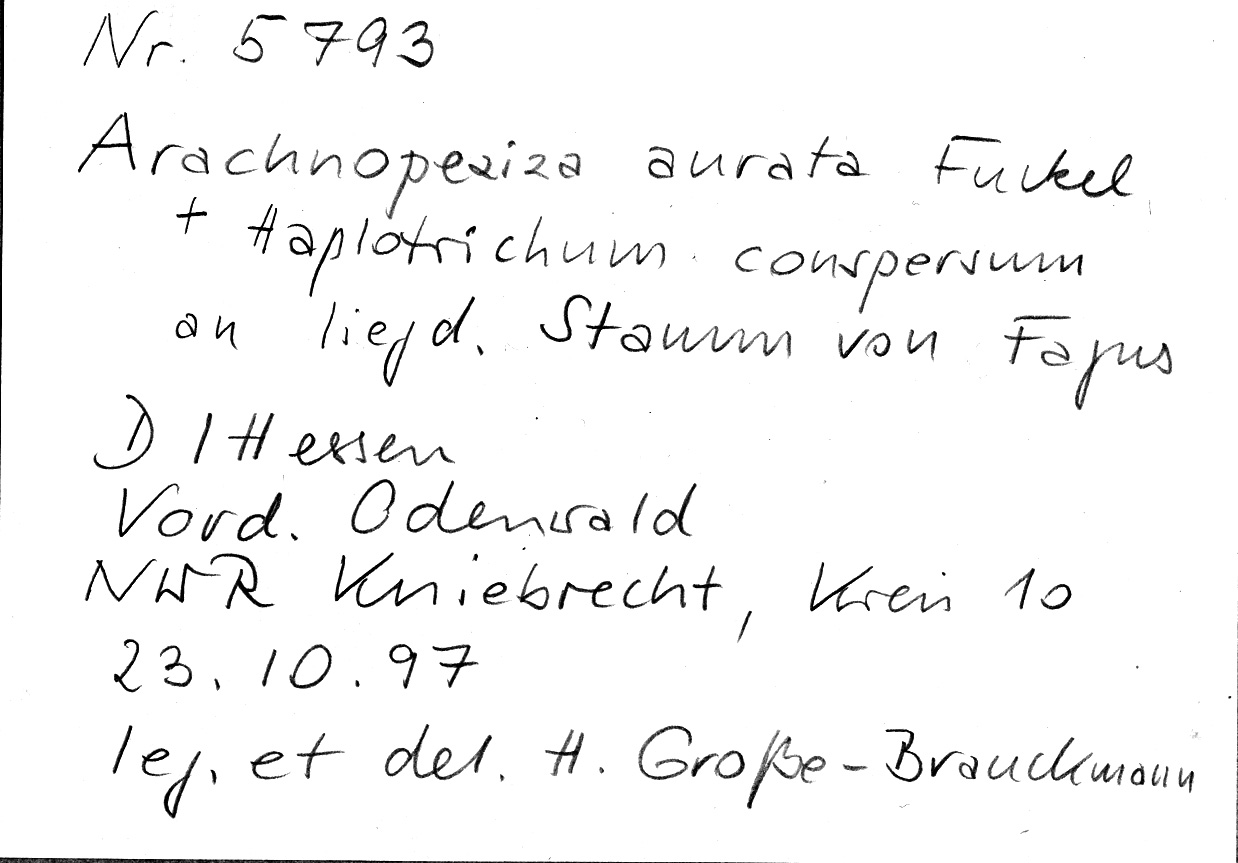 Nr. 5793
Arachnopeziza aurata Fuckel
+ Haplotrichum conspersum
an liegd. Stamm von Fagus
D / Hessen
Vord. Odenwald
NWR Kniebrecht, Kreis 10
23.10.97
leg. et det. H. Große-Brauckmann